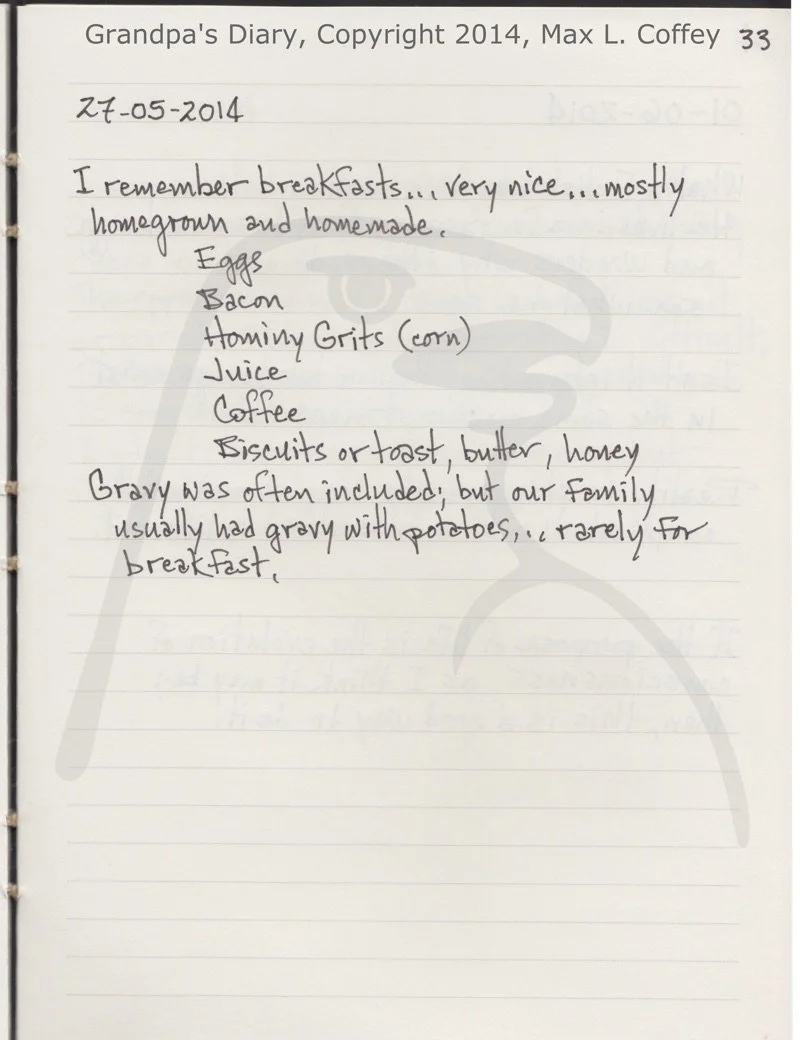 Grandpa's Diary, Copyright 2014, Max L. Coffey 33
27-05-2014
I remember breakfasts... very nice...mostly
homegrown and homemade.
Eggs
Bacon
Hominy Grits (corn)
Juice
Coffee
Biscuits or toast, butter, honey
Gravy was often included; but our family
usually had gravy with potatoes... rarely for
breakfast.